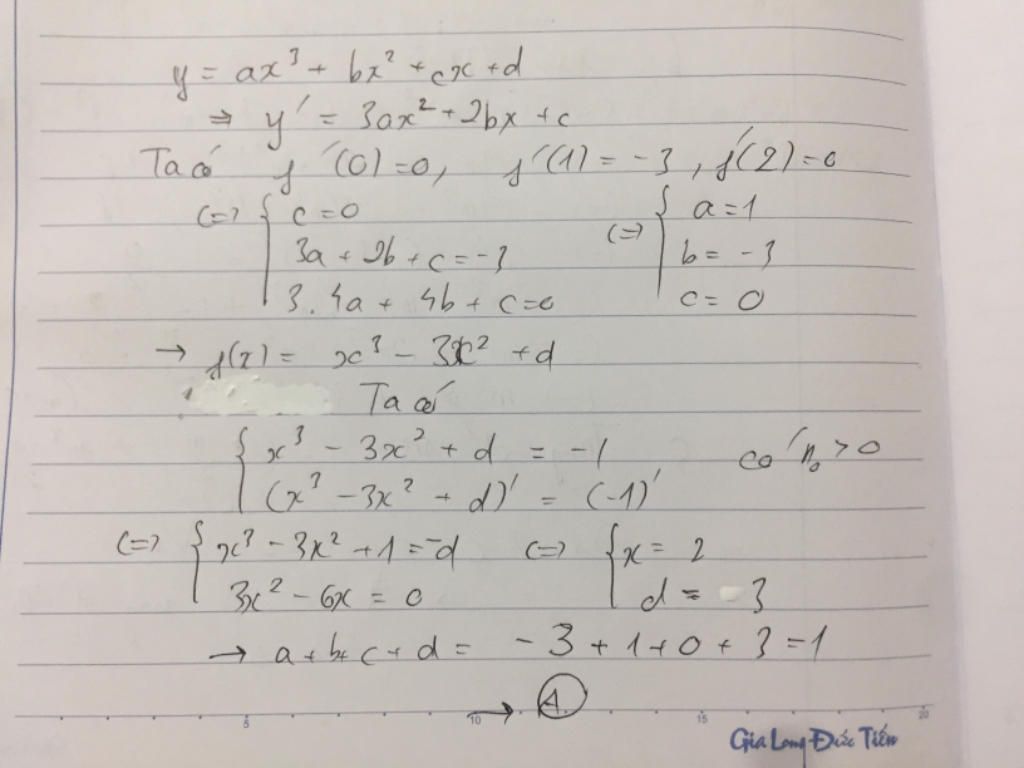 y = ax³ + bx² + cx + d
⇒ y' = 3ax² + 2bx + c
Ta có f'(0) = 0, f'(1) = -3, f'(2) = 0
(=) { c = 0 (=) { a = 1
3a + 2b + c = -3 b = -3
3.4a + 4b + c = 0 c = 0
→ f(x) = x³ - 3x² + d
Ta có
{ x³ - 3x² + d = -1 có n₀ > 0
(x³ - 3x² + d)' = (-1)'
(=) { x³ - 3x² + 1 = -d (=) { x = 2
3x² - 6x = 0 d = 3
→ a + b + c + d = -3 + 1 + 0 + 3 = 1
→ A.
5 10 15 20
Gia Long Đức Tiến